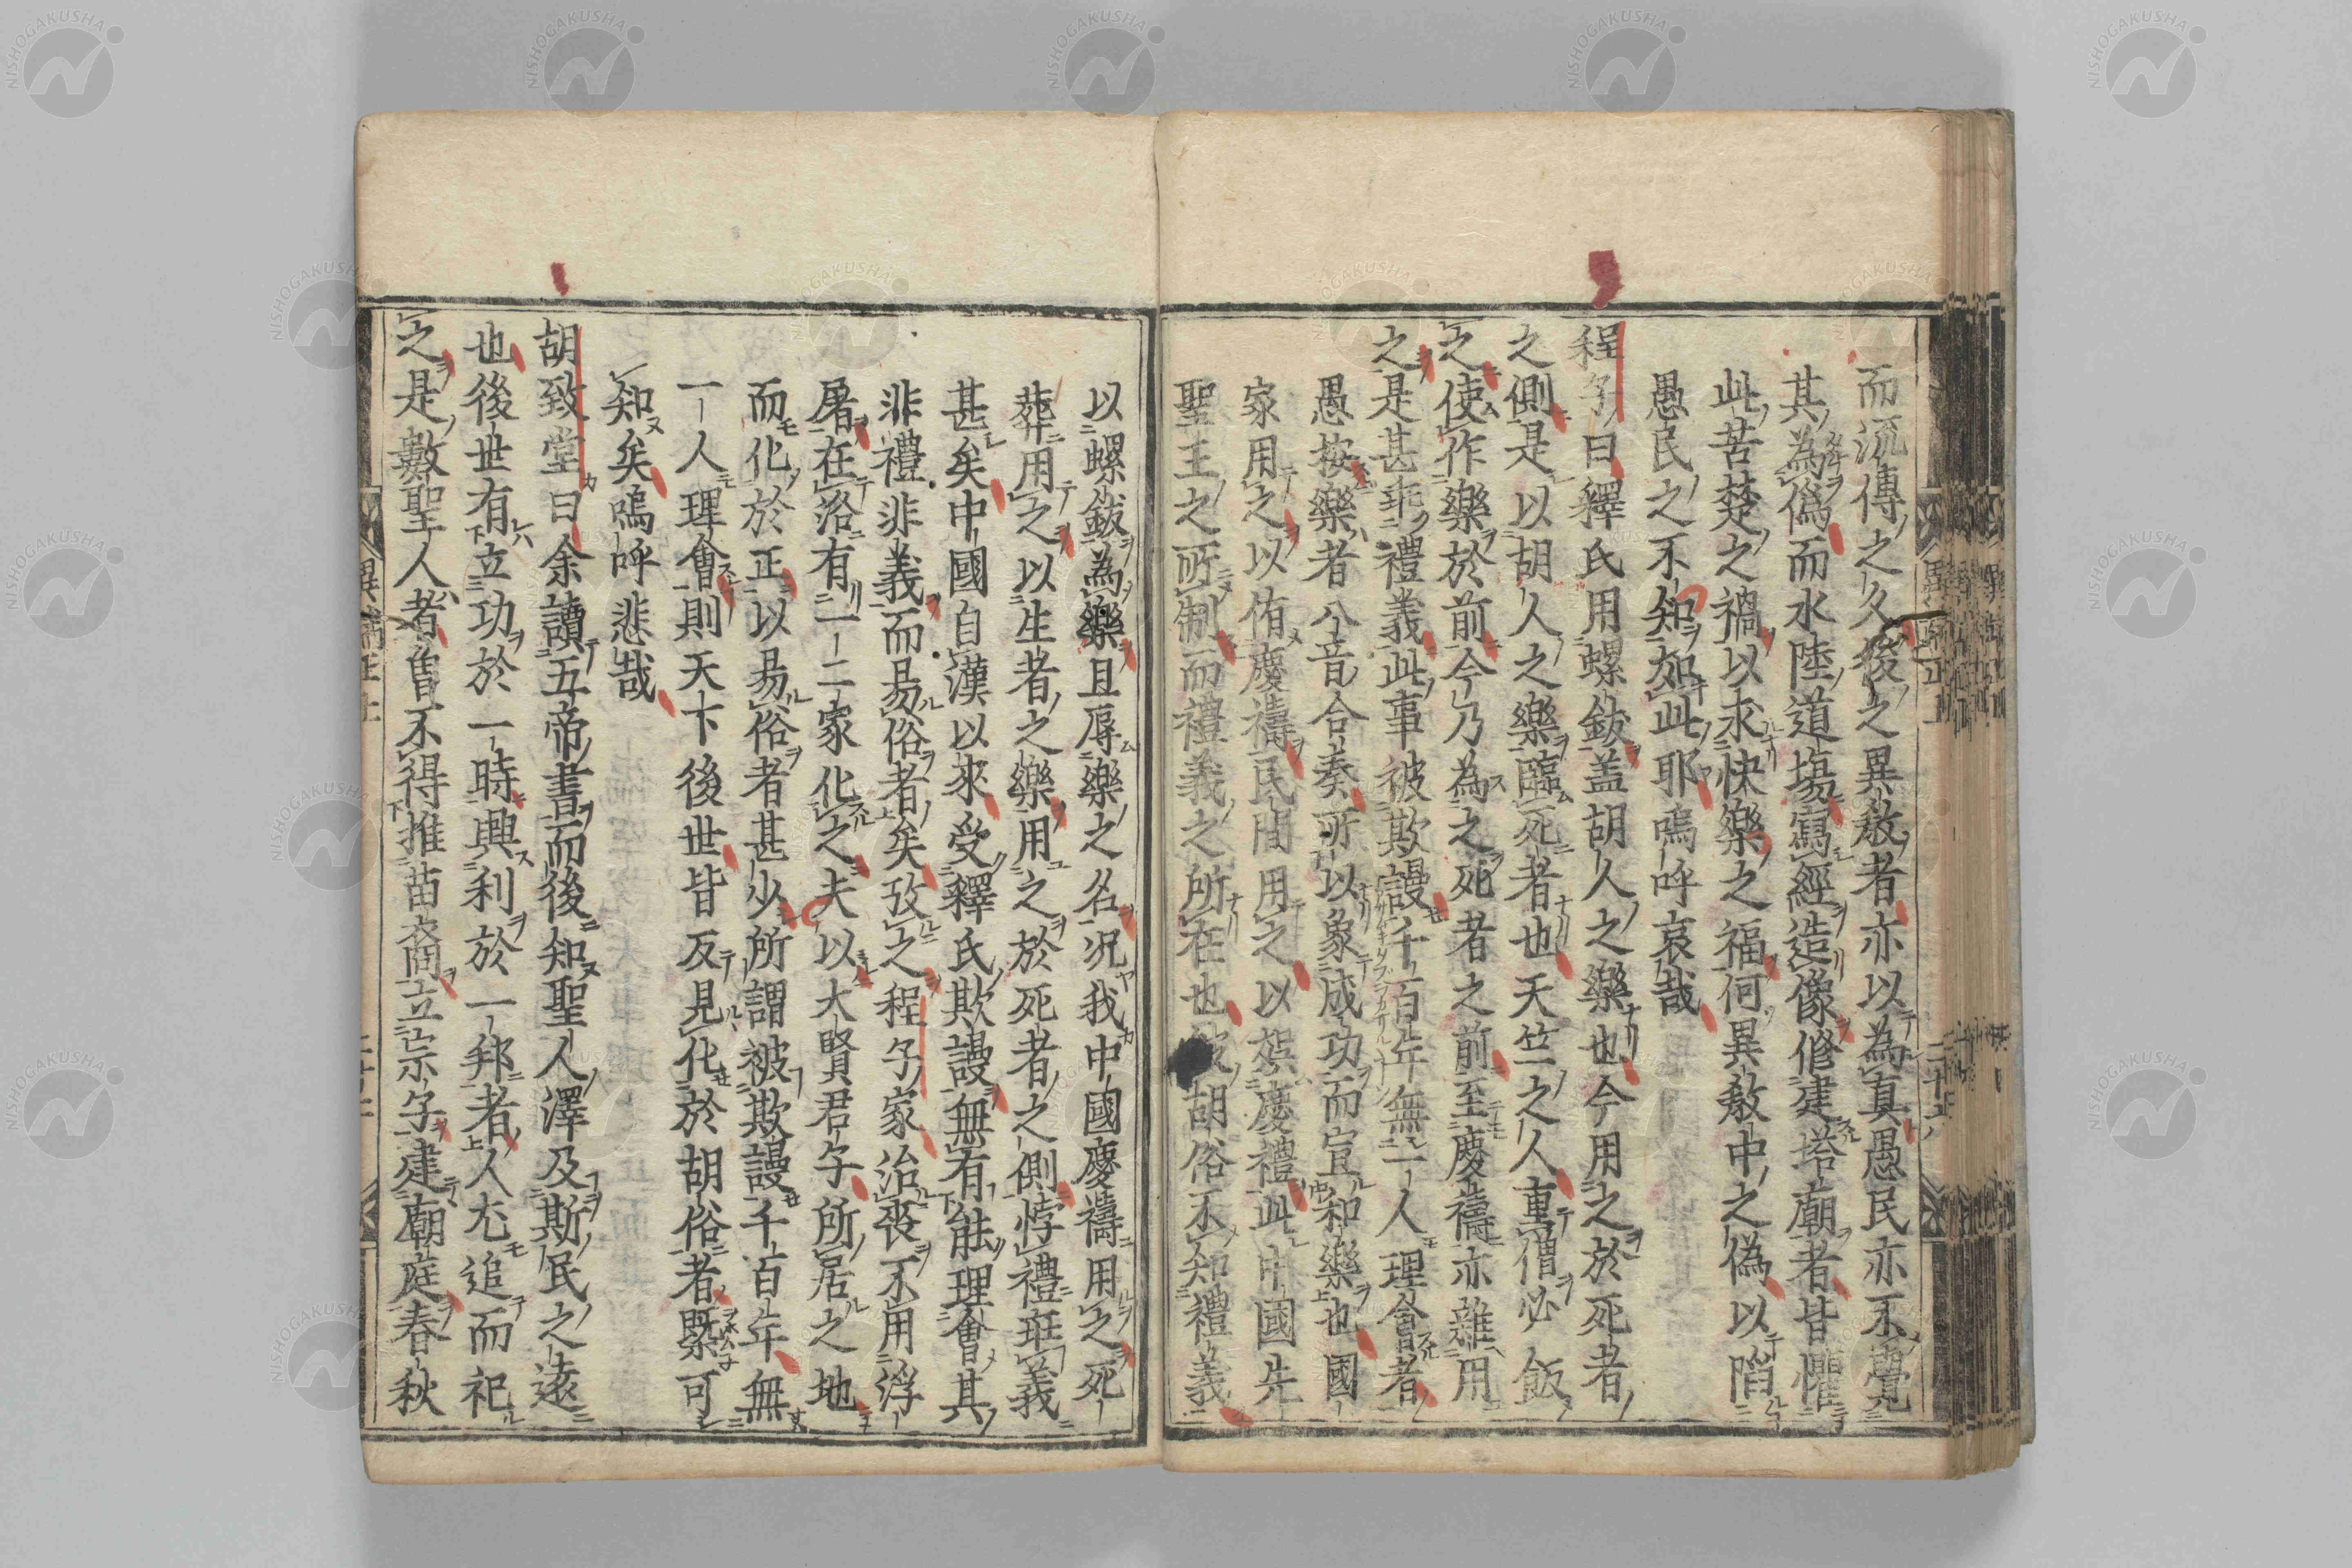 而流傳之久後之異教者亦以為真愚民亦不覺
其為僞而水陸道場寫經造像修建塔廟者皆懼
此苦楚之禍以求快樂之福何異教中之偽以陷
愚民之不知如此耶嗚呼哀哉
程子曰釋氏用螺鈸盖胡人之樂也今用之於死者
之側是以胡人之樂臨死者也天竺之人重僧必飯
之使作樂於前今乃為之死者之前至慶禱亦雜用
之是甚乖禮義此事被欺謾千百年無一人理會者
愚按樂者八音合奏所以象成功而宣和樂也國
家用之以侑慶禱民間用之以娯慶禮此中國先
聖王之所制而禮義之所在也彼胡俗不知禮義
以螺鈸為樂且辱樂之名况我中國慶禱用之死
葬用之以生者之樂用之於死者之側悖禮班義
甚矣中國自漢以來受釋氏欺謾無有能理會其
非禮非義而易俗者矣攷之程子家治喪不用浮
屠在洛有一二家化之夫以大賢君子所居之地
而化於正以易俗者甚少所謂被欺謾千百年無
一人理會則天下後世皆反見化於胡俗者槩可
知矣嗚呼悲哉
胡致堂曰余讀五帝書而後知聖人澤及斯民之遠
也後世有立功於一時興利於一邦者人尢追而祀
之是數聖人者曽不得推苗裔立宗子建廟庭春秋